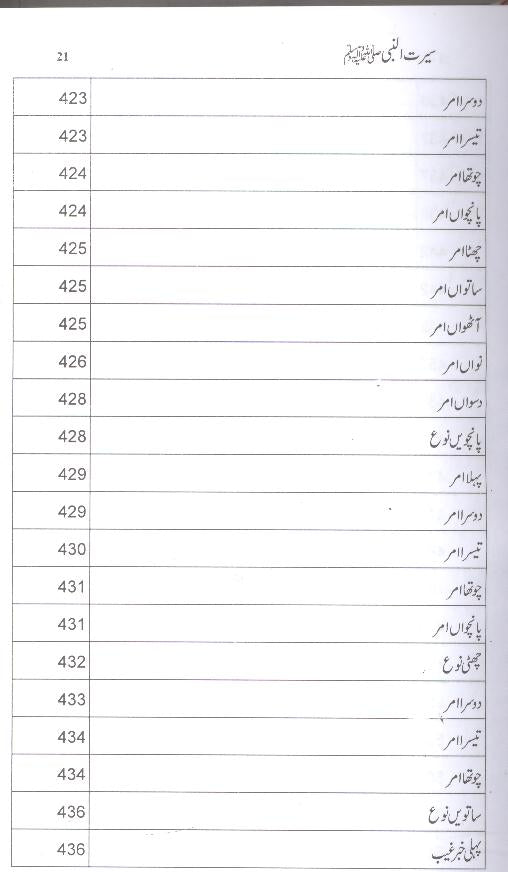 سیرت النبی ﷺ 21
دوسرا امر 423
تیسرا امر 423
چوتھا امر 424
پانچواں امر 424
چھٹا امر 425
ساتواں امر 425
آٹھواں امر 425
نواں امر 426
دسواں امر 428
پانچویں نوع 428
پہلا امر 429
دوسرا امر 429
تیسرا امر 430
چوتھا امر 431
پانچواں امر 431
چھٹی نوع 432
دوسرا امر 433
تیسرا امر 434
چوتھا امر 434
ساتویں نوع 436
پہلی خبر غیب 436